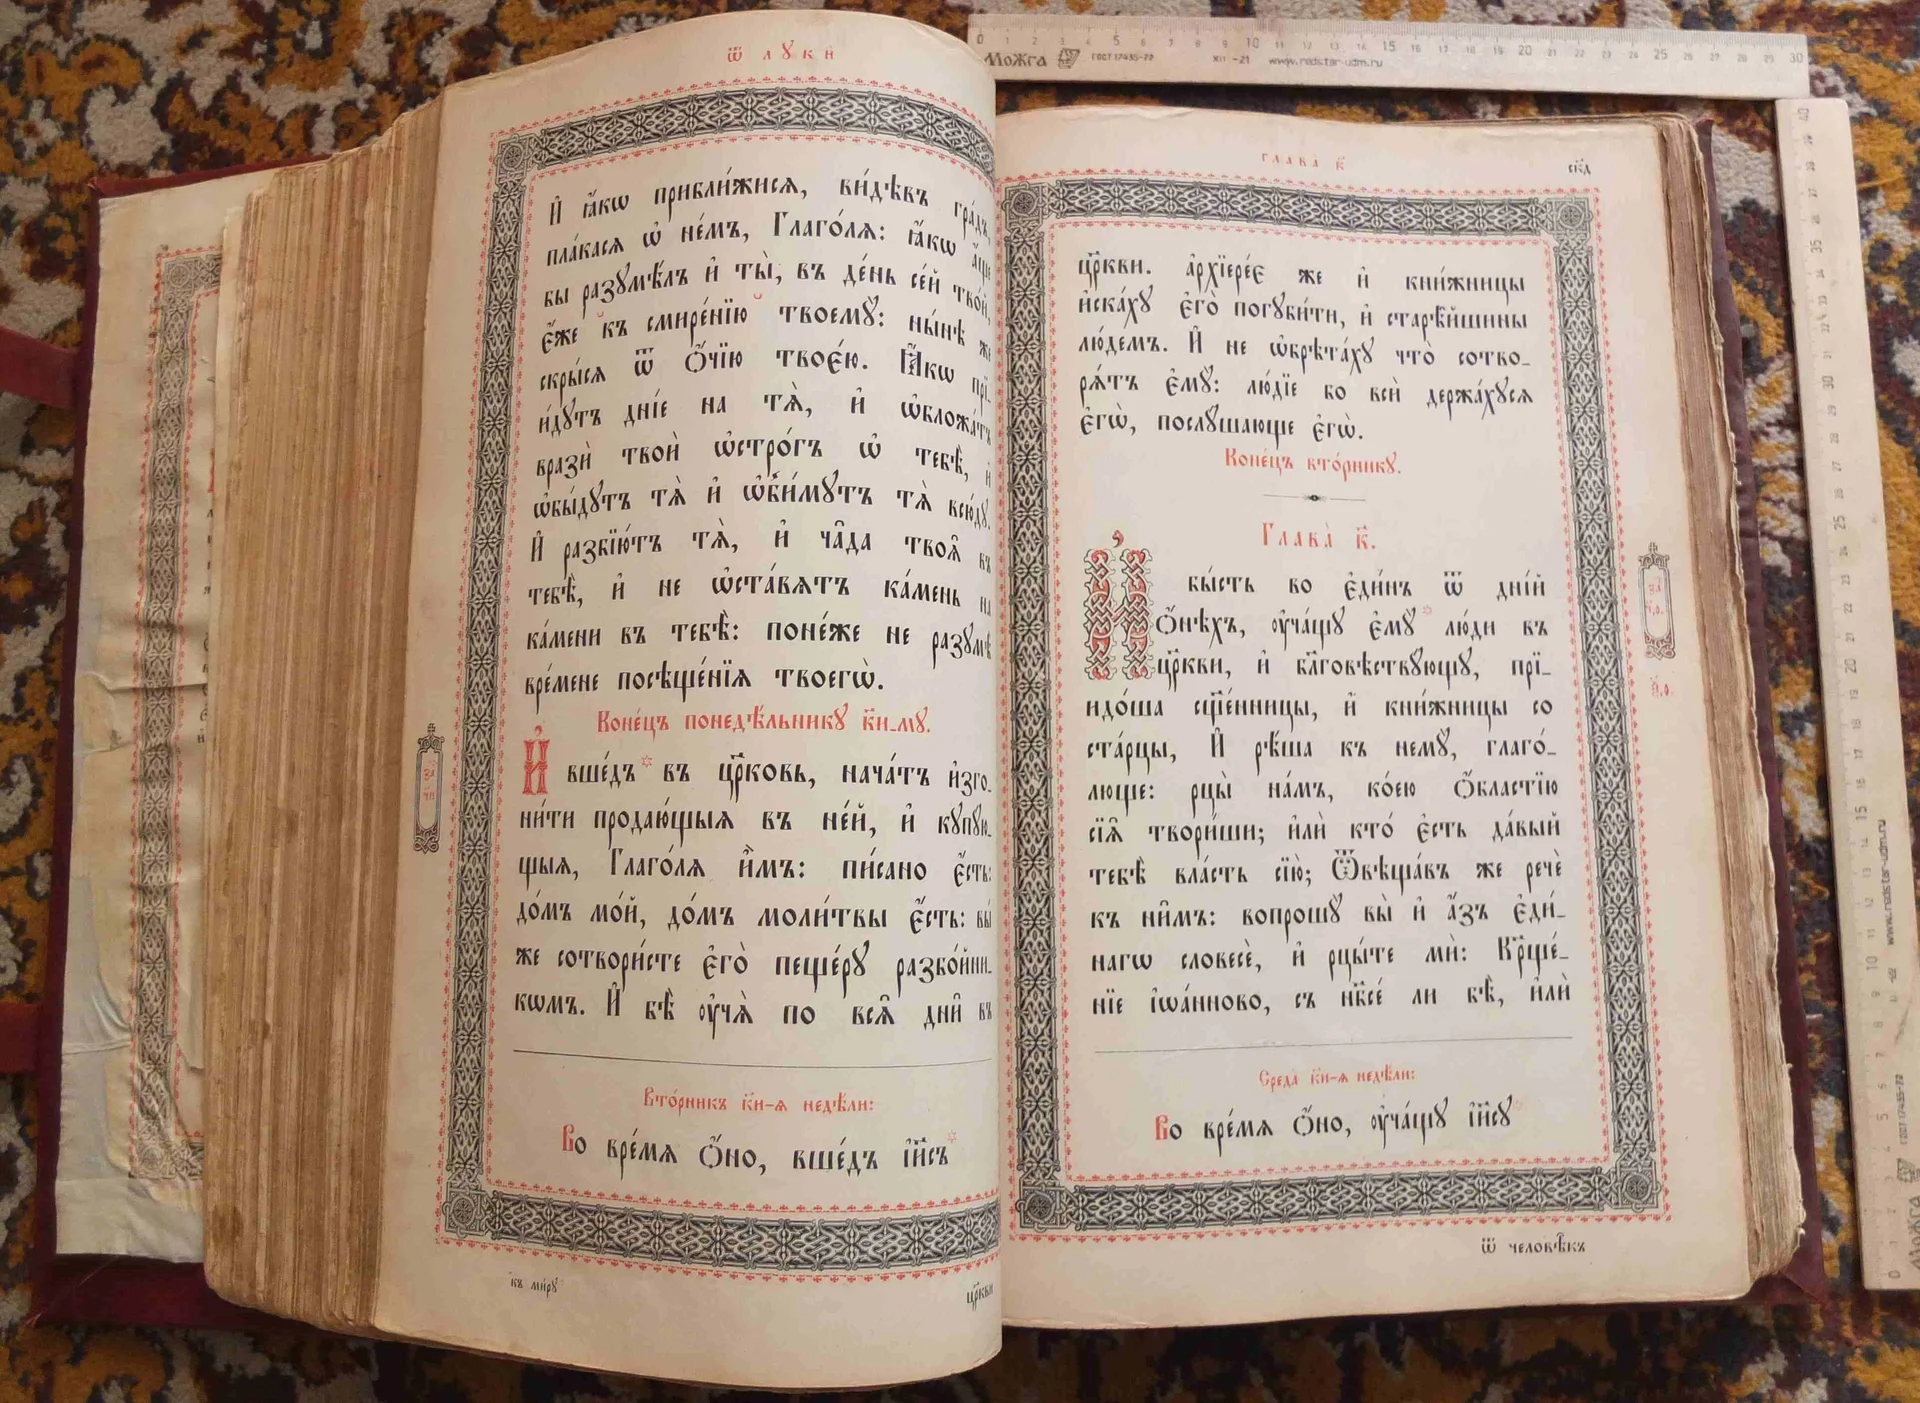 ѿ лꙋки
И҆ ꙗ҆́кѡ прибли́жисѧ, ви́дѣвъ гра́дъ,
пла́касѧ ѡ҆ не́мъ, Глаго́лѧ: ꙗ҆́кѡ а҆́ще
бы разꙋмѣ́лъ и҆ ты̀, въ де́нь се́й тво́й,
є҆́же къ смире́нїю твоемꙋ̀: ны́нѣ же
скры́сѧ ѿ Ѻ҆́чїю твоє́ю. Ꙗ҆́кѡ прї-
и́дꙋтъ дні́е на тѧ̀, и҆ ѡ҆бложа́тъ
вразѝ твоѝ ѡ҆стро́гъ ѡ҆ тебѣ̀, и҆
ѡ҆бы́дꙋтъ тѧ̀ и҆ ѡ҆б̾и́мꙋтъ тѧ̀ всю́дꙋ.
И҆ разбїю́тъ тѧ̀, и҆ ча̑да твоѧ̑ въ
тебѣ̀, и҆ не ѡ҆ста́вѧтъ ка́мень на
ка́мени въ тебѣ̀: поне́же не разꙋмѣ̀
вре́мене посѣще́нїѧ твоегѡ̀.
Коне́цъ понедѣ́льникꙋ к҃и-мꙋ.
за҃ чи
И҆ вше́дъ въ цр҃ковь, нача́тъ и҆зго-
ни́ти продаю́щыѧ въ не́й, и҆ кꙋпꙋю-
щыѧ, Глаго́лѧ и҆̀мъ: пи́сано є҆́сть:
до́мъ мо́й, до́мъ моли́твы є҆́сть: вы́
же сотвори́сте є҆го̀ пеще́рꙋ разбо́йни-
кѡмъ. И҆ бѣ̀ ᲂу҆чѧ̀ по всѧ̑ дни̑ въ
Вто́рникъ к҃и-ѧ недѣ́ли:
Во вре́мѧ Ѻ҆́но, вше́дъ і҆и҃съ
къ ми́рꙋ
цр҃кви
глава к҃
ск҃д
цр҃кви. а҆рхїере́є же и҆ кни́жницы
и҆ска́хꙋ є҆го̀ погꙋби́ти, и҆ старѣ́йшины
лю́демъ. И҆ не ѡ҆брѣта́хꙋ что̀ сотво-
рѧ́тъ є҆мꙋ̀: лю́дїе бо всѝ держа́хꙋсѧ
є҆гѡ̀, послꙋ́шающе є҆гѡ̀.
Коне́цъ вто́рникꙋ.
Глава̀ к҃.
И҆ бы́сть во є҆ди́нъ ѿ дні́й
Ѻ҆нѣ́хъ, ᲂу҆ча́щꙋ є҆мꙋ̀ лю́ди въ
цр҃кви, и҆ бл҃говѣствꙋющꙋ, прї-
идо́ша сщ҃е́нницы, и҆ кни́жницы со
ста́рцы, И҆ рѣ́ша къ немꙋ̀, глаго́-
люще: рцы̀ на́мъ, ко́ею Ѻ҆́бластїю
сїѧ̑ твори́ши; и҆лѝ кто́ є҆́сть да́вый
тебѣ̀ вла́сть сїю̀; Ѿвѣща́въ же речѐ
къ ни̑мъ: вопрошꙋ̀ вы̀ и҆ а҆́зъ є҆ди́-
нагѡ словесѐ, и҆ рцы́те мѝ: Кр҃ще́-
нїе і҆ѡа́нново, съ нб҃се́ ли бѣ̀, и҆лѝ
Среда̀ к҃и-ѧ недѣ́ли:
Во вре́мѧ Ѻ҆́но, ᲂу҆ча́щꙋ і҆и҃сꙋ
ѿ человѣ̑къ
0 1 2 3 4 5 6 7 8 9 10 11 12 13 14 15 16 17 18 19 20 21 22 23 24 25 26 27 28 29 30
Можга ГОСТ 17435-72 ц -21 www.radstar-udm.ru
www.radstar-udm.ru
ГОСТ 17435-72
Можга